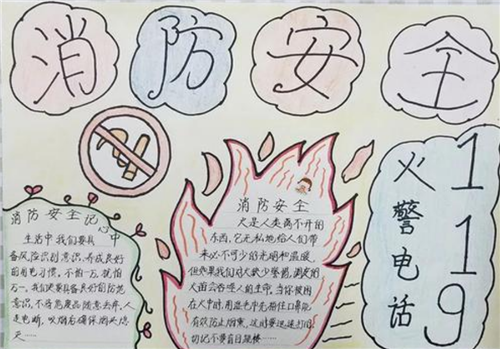 消防安全
消防安全记心中
生活中我们要具
备风险识别意识,养成良好
的用电习惯,不怕一万,就怕
万一。我们决要具备良好的防范
意识,不将危废品随意丢弃,人
走电断,吸烟后确保烟头熄
灭……
消防安全
火是人类离不开的
东西,它无私地给人们带
来必不可少的光明和温暖,
但如果我们对火缺少警惕,凶猛的
火苗会吞噬人的生命,当你被困
在火中时,用湿巾中先捂住口鼻,
有效防止烟熏,这时要迅速打
切记不要盲目跳楼……
火警电话
119